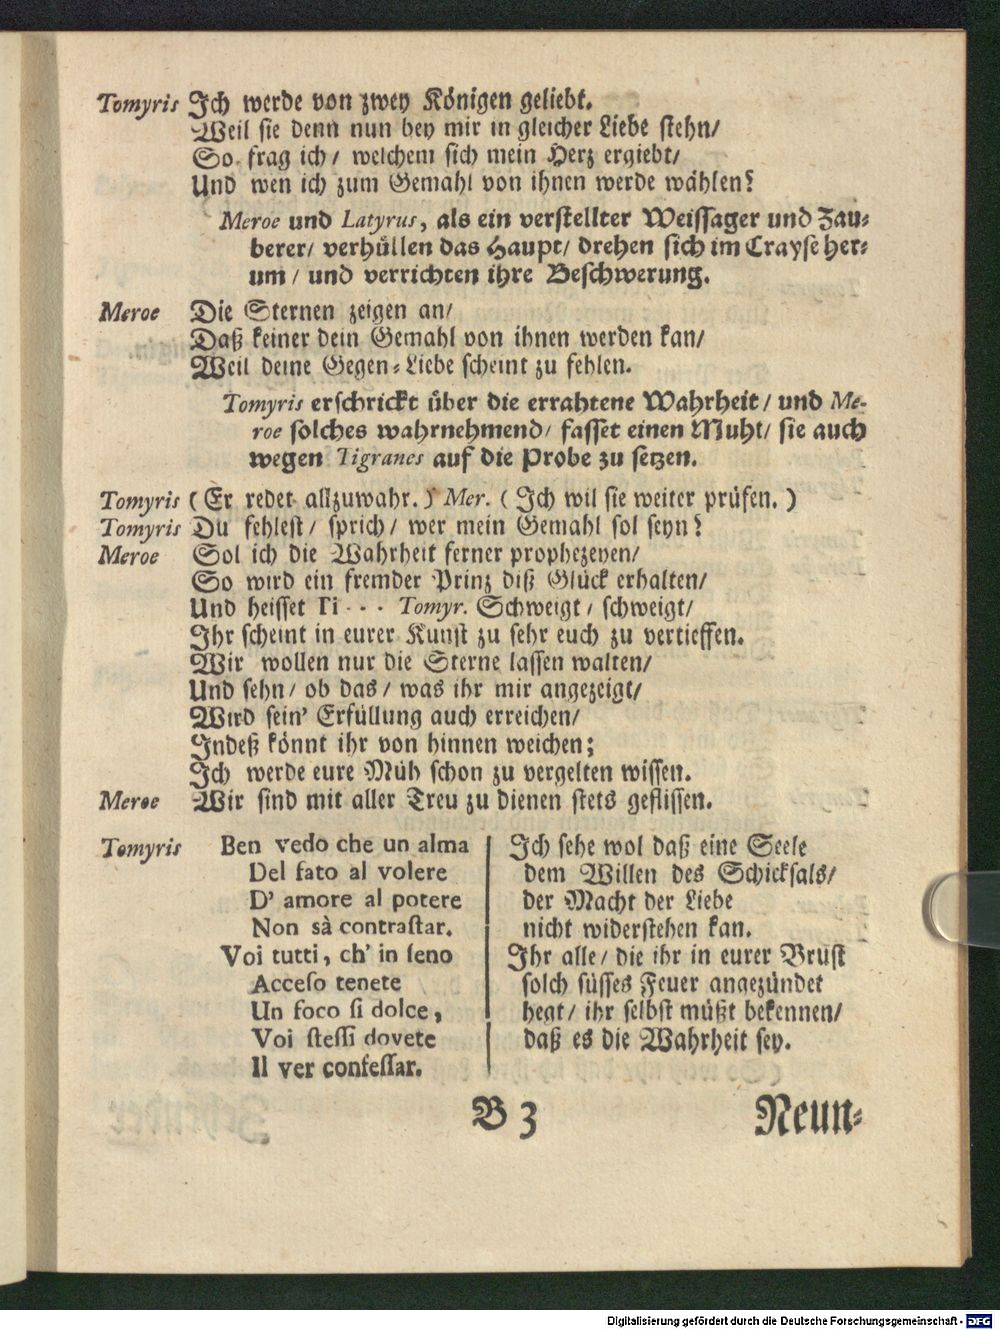 Tomyris Ich werde von zwey Königen geliebt.
Weil sie denn nun bey mir in gleicher Liebe stehn/
So frag ich/ welchem sich mein Herz ergiebt/
Und wen ich zum Gemahl von ihnen werde wählen?
Meroe und Latyrus, als ein verstellter Weissager und Zau-
berer/ verhüllen das Haupt/ drehen sich im Crayse her-
um/ und verrichten ihre Beschwerung.
Meroe Die Sternen zeigen an/
Daß keiner dein Gemahl von ihnen werden kan/
Weil deine Gegen-Liebe scheint zu fehlen.
Tomyris erschrickt über die errahtene Wahrheit/ und Me-
roe solches wahrnehmend/ fasset einen Muht/ sie auch
wegen Tigranes auf die Probe zu setzen.
Tomyris (Er redet allzuwahr.) Mer. (Ich wil sie weiter prüfen.)
Tomyris Du fehlest/ sprich/ wer mein Gemahl sol seyn?
Meroe Sol ich die Wahrheit ferner prophezeyen/
So wird ein fremder Prinz diß Glück erhalten/
Und heisset Ti - - - Tomyr. Schweigt/ schweigt/
Ihr scheint in eurer Kunst zu sehr euch zu vertieffen.
Wir wollen nur die Sterne lassen walten/
Und sehn/ ob das/ was ihr mir angezeigt/
Wird sein' Erfüllung auch erreichen/
Indeß könnt ihr von hinnen weichen;
Ich werde eure Müh schon zu vergelten wissen.
Meroe Wir sind mit aller Treu zu dienen stets geflissen.
Tomyris Ben vedo che un alma
Del fato al volere
D' amore al potere
Non sà contraſtar.
Voi tutti, ch' in ſeno
Acceſo tenete
Un foco ſi dolce,
Voi ſteſſi dovete
Il ver confeſſar.
Ich sehe wol daß eine Seele
dem Willen des Schicksals/
der Macht der Liebe
nicht widerstehen kan.
Ihr alle/ die ihr in eurer Brust
solch süsses Feuer angezündet
hegt/ ihr selbst müßt bekennen/
daß es die Wahrheit sey.
B 3
Neun-
Digitalisierung gefördert durch die Deutsche Forschungsgemeinschaft - DFG